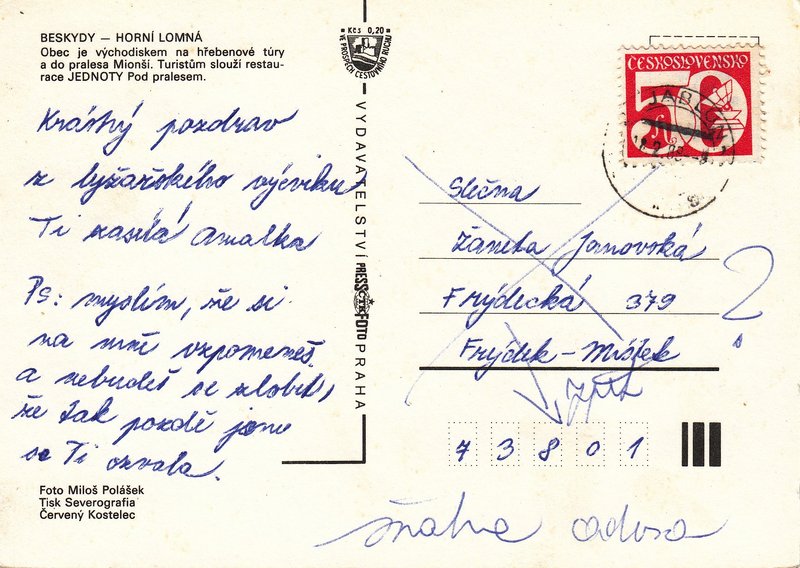 BESKYDY — HORNÍ LOMNÁ
Obec je východiskem na hřebenové túry
a do pralesa Mionší. Turistům slouží restau-
race JEDNOTY Pod pralesem.
Krásný pozdrav
z lyžařského výcviku
Ti zasílá Amalka
Ps: myslím, že si
na mně vzpomeneš
a nebudeš se zlobit,
že tak pozdě jsme
se Ti ozvala.
Foto Miloš Polášek
Tisk Severografia
Červený Kostelec
Kčs 0,20
VE PROSPĚCH CESTOVNÍHO RUCHU
VYDAVATELSTVÍ PRESSFOTO PRAHA
ČTK
ČESKOSLOVENSKO
50
Slečna
Žaneta Janovská
Frýdecká 379
Frýdek-Místek
?
zpět
73801